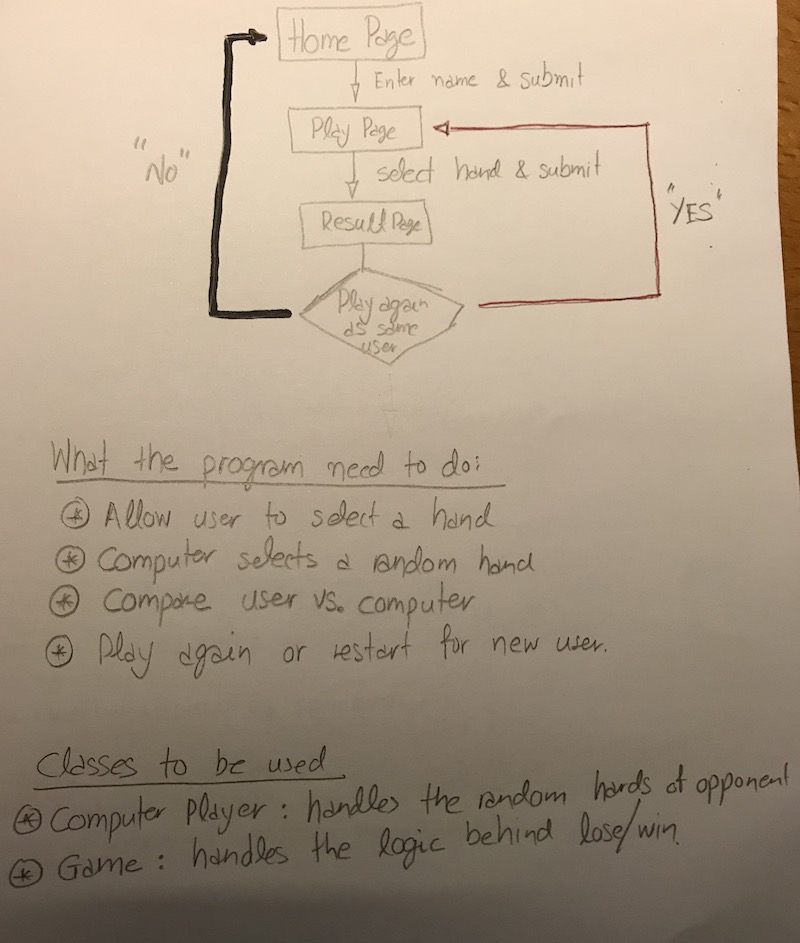 Home Page
Enter name & submit
Play Page
"No"
select hand & submit
"YES"
Result Page
Play again
as same
user
What the program need to do:
* Allow user to select a hand
* Computer selects a random hand
* Compare user vs. computer
* Play again or restart for new user.
Classes to be used
* Computer Player : handles the random hands of opponent
* Game : handles the logic behind lose/win.